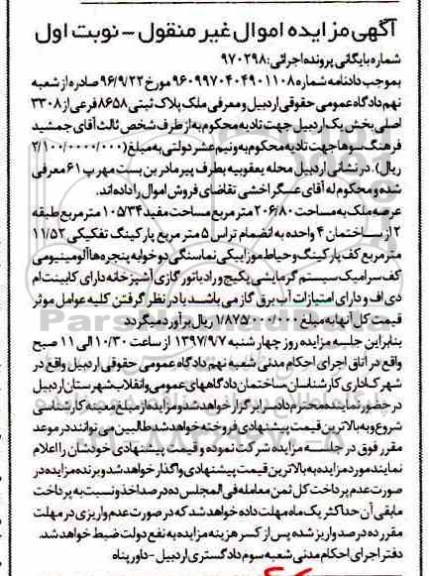 آگهی مزایده اموال غیر منقول - نوبت اول
شماره بایگانی پرونده اجرائی: ۹۷۰۲۹۸
بموجب دادنامه شماره ۹۶۰۹۹۷۰۴۰۴۹۰۱۱۰۸ مورخ ۹۶/۹/۲۲ صادره از شعبه
نهم دادگاه عمومی حقوقی اردبیل و معرفی ملک پلاک ثبتی ۸۶۵۸ فرعی از ۳۳۰۸
اصلی بخش یک اردبیل جهت تادیه محکوم به از طرف شخص ثالث آقای جمشید
فرهنگ سوها جهت تادیه محکوم به و نیم عشر دولتی به مبلغ (۲/۱۰۰/۰۰۰/۰۰۰
ریال). در نشانی اردبیل محله یعقوبیه بطرف پیرمادر بن بست مهر پ ۶۱ معرفی
شده و محکوم له آقای عسگر اخشی تقاضای فروش اموال را داده اند.
عرصه ملک به مساحت ۲۰۶/۸۰ متر مربع مساحت مفید ۱۰۵/۳۴ متر مربع طبقه
۲ از ساختمان ۴ واحده به انضمام تراس ۵ متر مربع پارکینگ تفکیکی ۱۱/۵۲
متر مربع کف پارکینگ و حیاط موزاییکی نماسنگی دو خوابه پنجره ها آلومینیومی
کف سرامیک سیستم گرمایشی پکیج و رادیاتور گازی آشپزخانه دارای کابینت ام
دی اف و دارای امتیازات آب برق گاز می باشد با در نظر گرفتن کلیه عوامل موثر
قیمت کل آنها به مبلغ ۱/۸۷۵/۰۰۰/۰۰۰ ریال برآورد میگردد
بنابراین جلسه مزایده روز چهارشنبه ۱۳۹۷/۹/۷ از ساعت ۱۰/۳۰ الی ۱۱ صبح
واقع در اتاق اجرای احکام مدنی شعبه نهم دادگاه عمومی حقوقی اردبیل واقع در
شهرک اداری کارشناسان ساختمان دادگاههای عمومی و انقلاب شهرستان اردبیل
در حضور نماینده محترم دادسرا برگزار خواهد شد و مزایده از مبلغ معینه کارشناسی
شروع و به بالاترین قیمت پیشنهادی فروخته خواهد شد طالبین می توانند در موعد
مقرر فوق در جلسه مزایده شرکت نموده و قیمت پیشنهادی خودشان را اعلام
نمایند مورد مزایده به بالاترین قیمت پیشنهادی واگذار خواهد شد و برنده مزایده در
صورت عدم پرداخت کل ثمن معامله فی المجلس ده درصد اخذ و نسبت به پرداخت
مابقی آن حداکثر یک ماه مهلت داده خواهد شد که در صورت عدم واریزی در مهلت
مقرر ده درصد واریز شده پس از کسر هزینه مزایده به نفع دولت ضبط خواهد شد.
دفتر اجرای احکام مدنی شعبه سوم دادگستری اردبیل - داور پناه